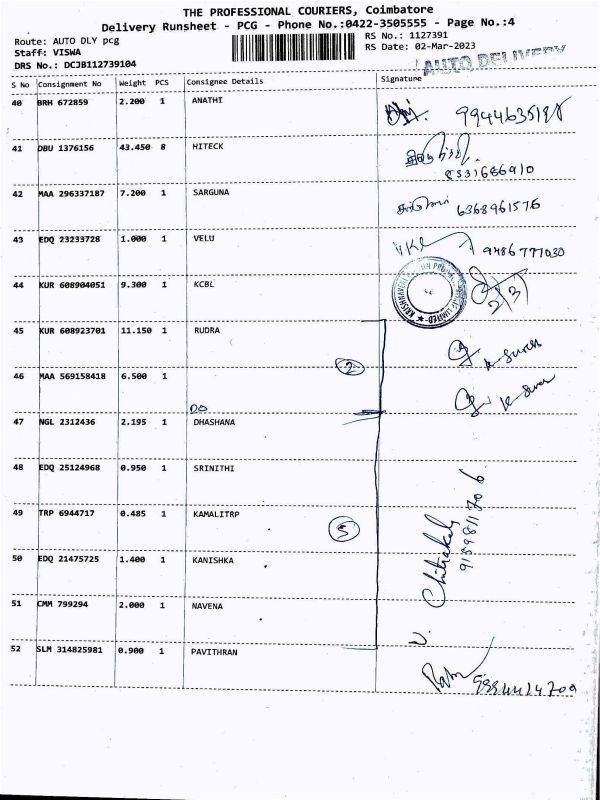 THE PROFESSIONAL COURIERS, Coimbatore
Delivery Runsheet - PCG - Phone No.:0422-3505555 - Page No.:4
Route: AUTO DLY pcg
Staff: VISWA
DRS No.: DCJB112739104
RS No.: 1127391
RS Date: 02-Mar-2023
AUTO DELIVERY
S No Consignment No Weight PCS Consignee Details Signature
40 BRH 672859 2.200 1 ANATHI
41 DBU 1376156 43.450 8 HITECK
8531686910
42 MAA 296337187 7.200 1 SARGUNA
6368961576
43 EDQ 23233728 1.000 1 VELU
9486777030
44 KUR 608904051 9.300 1 KCBL
2/3
45 KUR 608923701 11.150 1 RUDRA
K Suresh
2
46 MAA 569158418 6.500 1
DO
47 NGL 2312436 2.195 1 DHASHANA
48 EDQ 25124968 0.950 1 SRINITHI
49 TRP 6944717 0.485 1 KAMALITRP
5
50 EDQ 21475725 1.400 1 KANISHKA
51 CMM 799294 2.000 1 NAVENA
52 SLM 314825981 0.900 1 PAVITHRAN